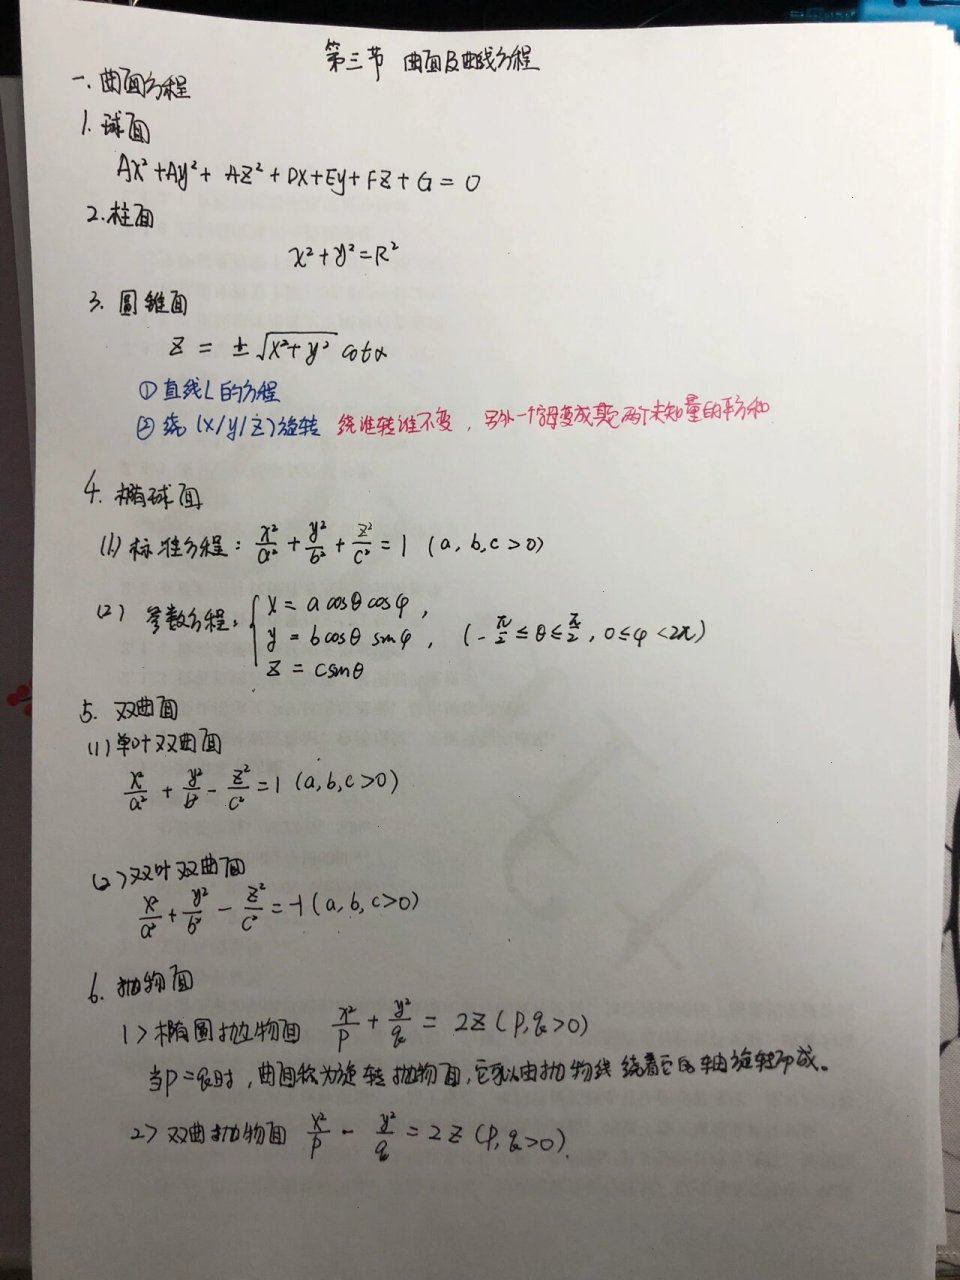 第三节 曲面及曲线方程
一.曲面方程
1.球面
Ax²+Ay²+Az²+Dx+Ey+Fz+G=0
2.柱面
x²+y²=R²
3.圆锥面
z=±√(x²+y²) cotα
①直线L的方程
②绕(x/y/z)旋转 绕谁转谁不变,另外一个字母变成其它两个未知量的平方和
4.椭球面
(1)标准方程:x²/a²+y²/b²+z²/c²=1 (a,b,c>0)
(2)参数方程:{x=a cosθ cosφ,
y=b cosθ sinφ, (-π/2≤θ≤π/2, 0≤φ<2π)
z=c sinθ
5.双曲面
(1)单叶双曲面
x²/a²+y²/b²-z²/c²=1 (a,b,c>0)
(2)双叶双曲面
x²/a²+y²/b²-z²/c²=-1 (a,b,c>0)
6.抛物面
1>椭圆抛物面 x²/p+y²/q=2z (p,q>0)
当p=q时,曲面称为旋转抛物面,它可以由抛物线绕着它的轴旋转而成。
2>双曲抛物面 x²/p-y²/q=2z (p,q>0).